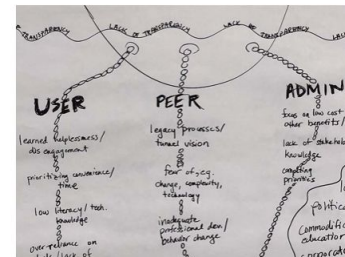 TRANSPARENCY
LACK OF TRANSPARENCY
LACK OF TRANSPARENCY
USER
learned helplessness/
disengagement
prioritizing convenience/
time
low literacy/tech.
knowledge
over-reliance on
lack of
PEER
legacy processes/
tunnel vision
fear of, e.g.
change, complexity,
technology
inadequate
professional dev/
behavior change
ADMIN
focus on low cost
other benefits/
lack of stakeho
knowledge
competing
priorities
politica
Commodific
education
corporate